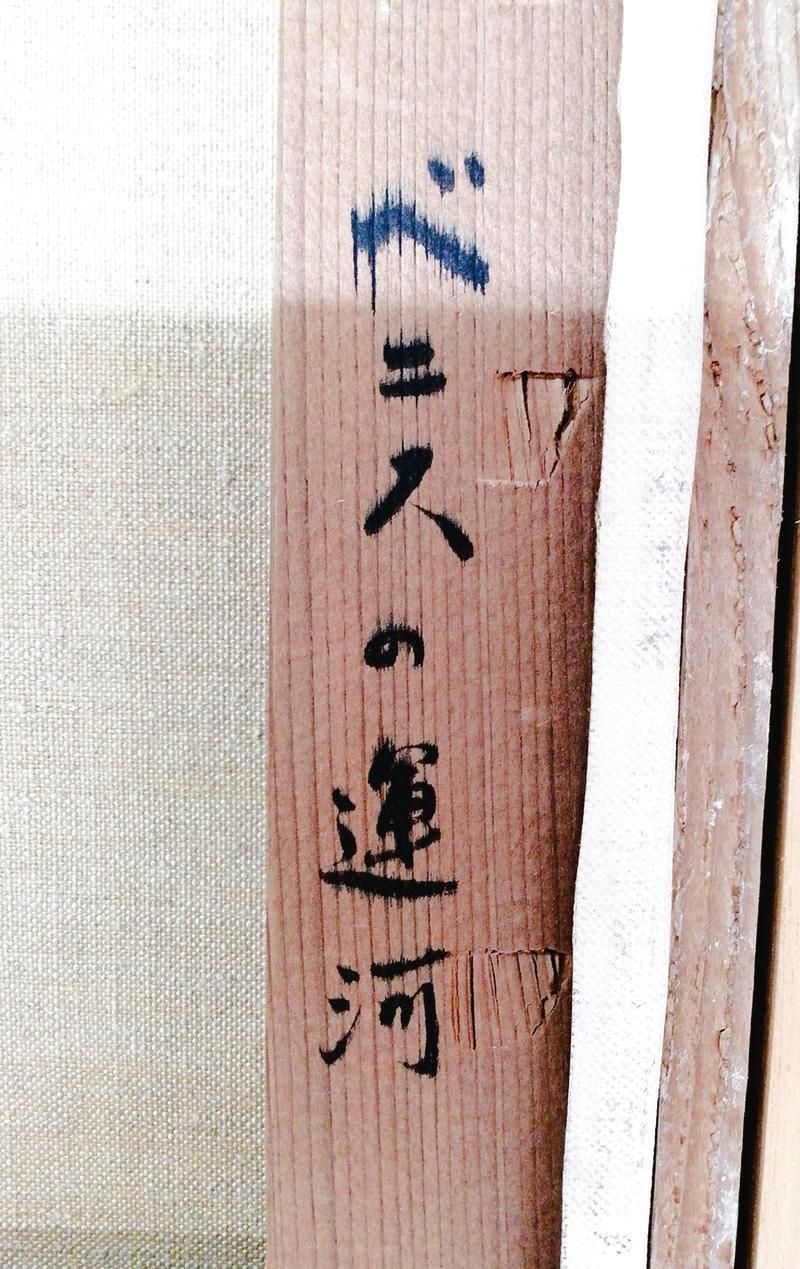 ベニスの運河